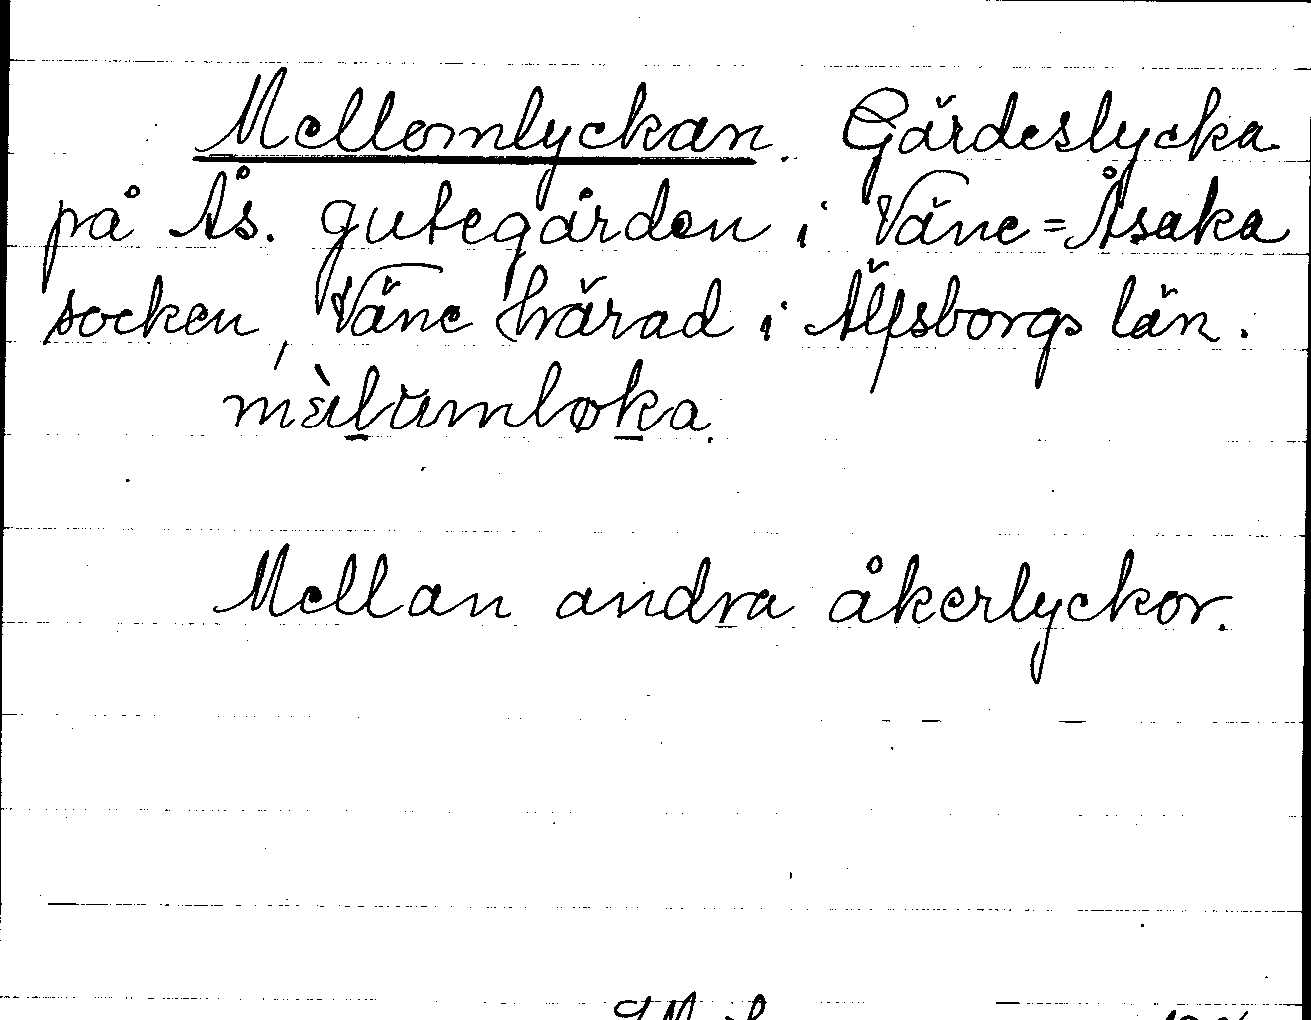 Mellomlyckan. Gärdeslycka
på Ås. gutegården i Väne=Åsaka
socken, Väne härad i Älfsborgs län.
Mellan andra åkerlyckor.